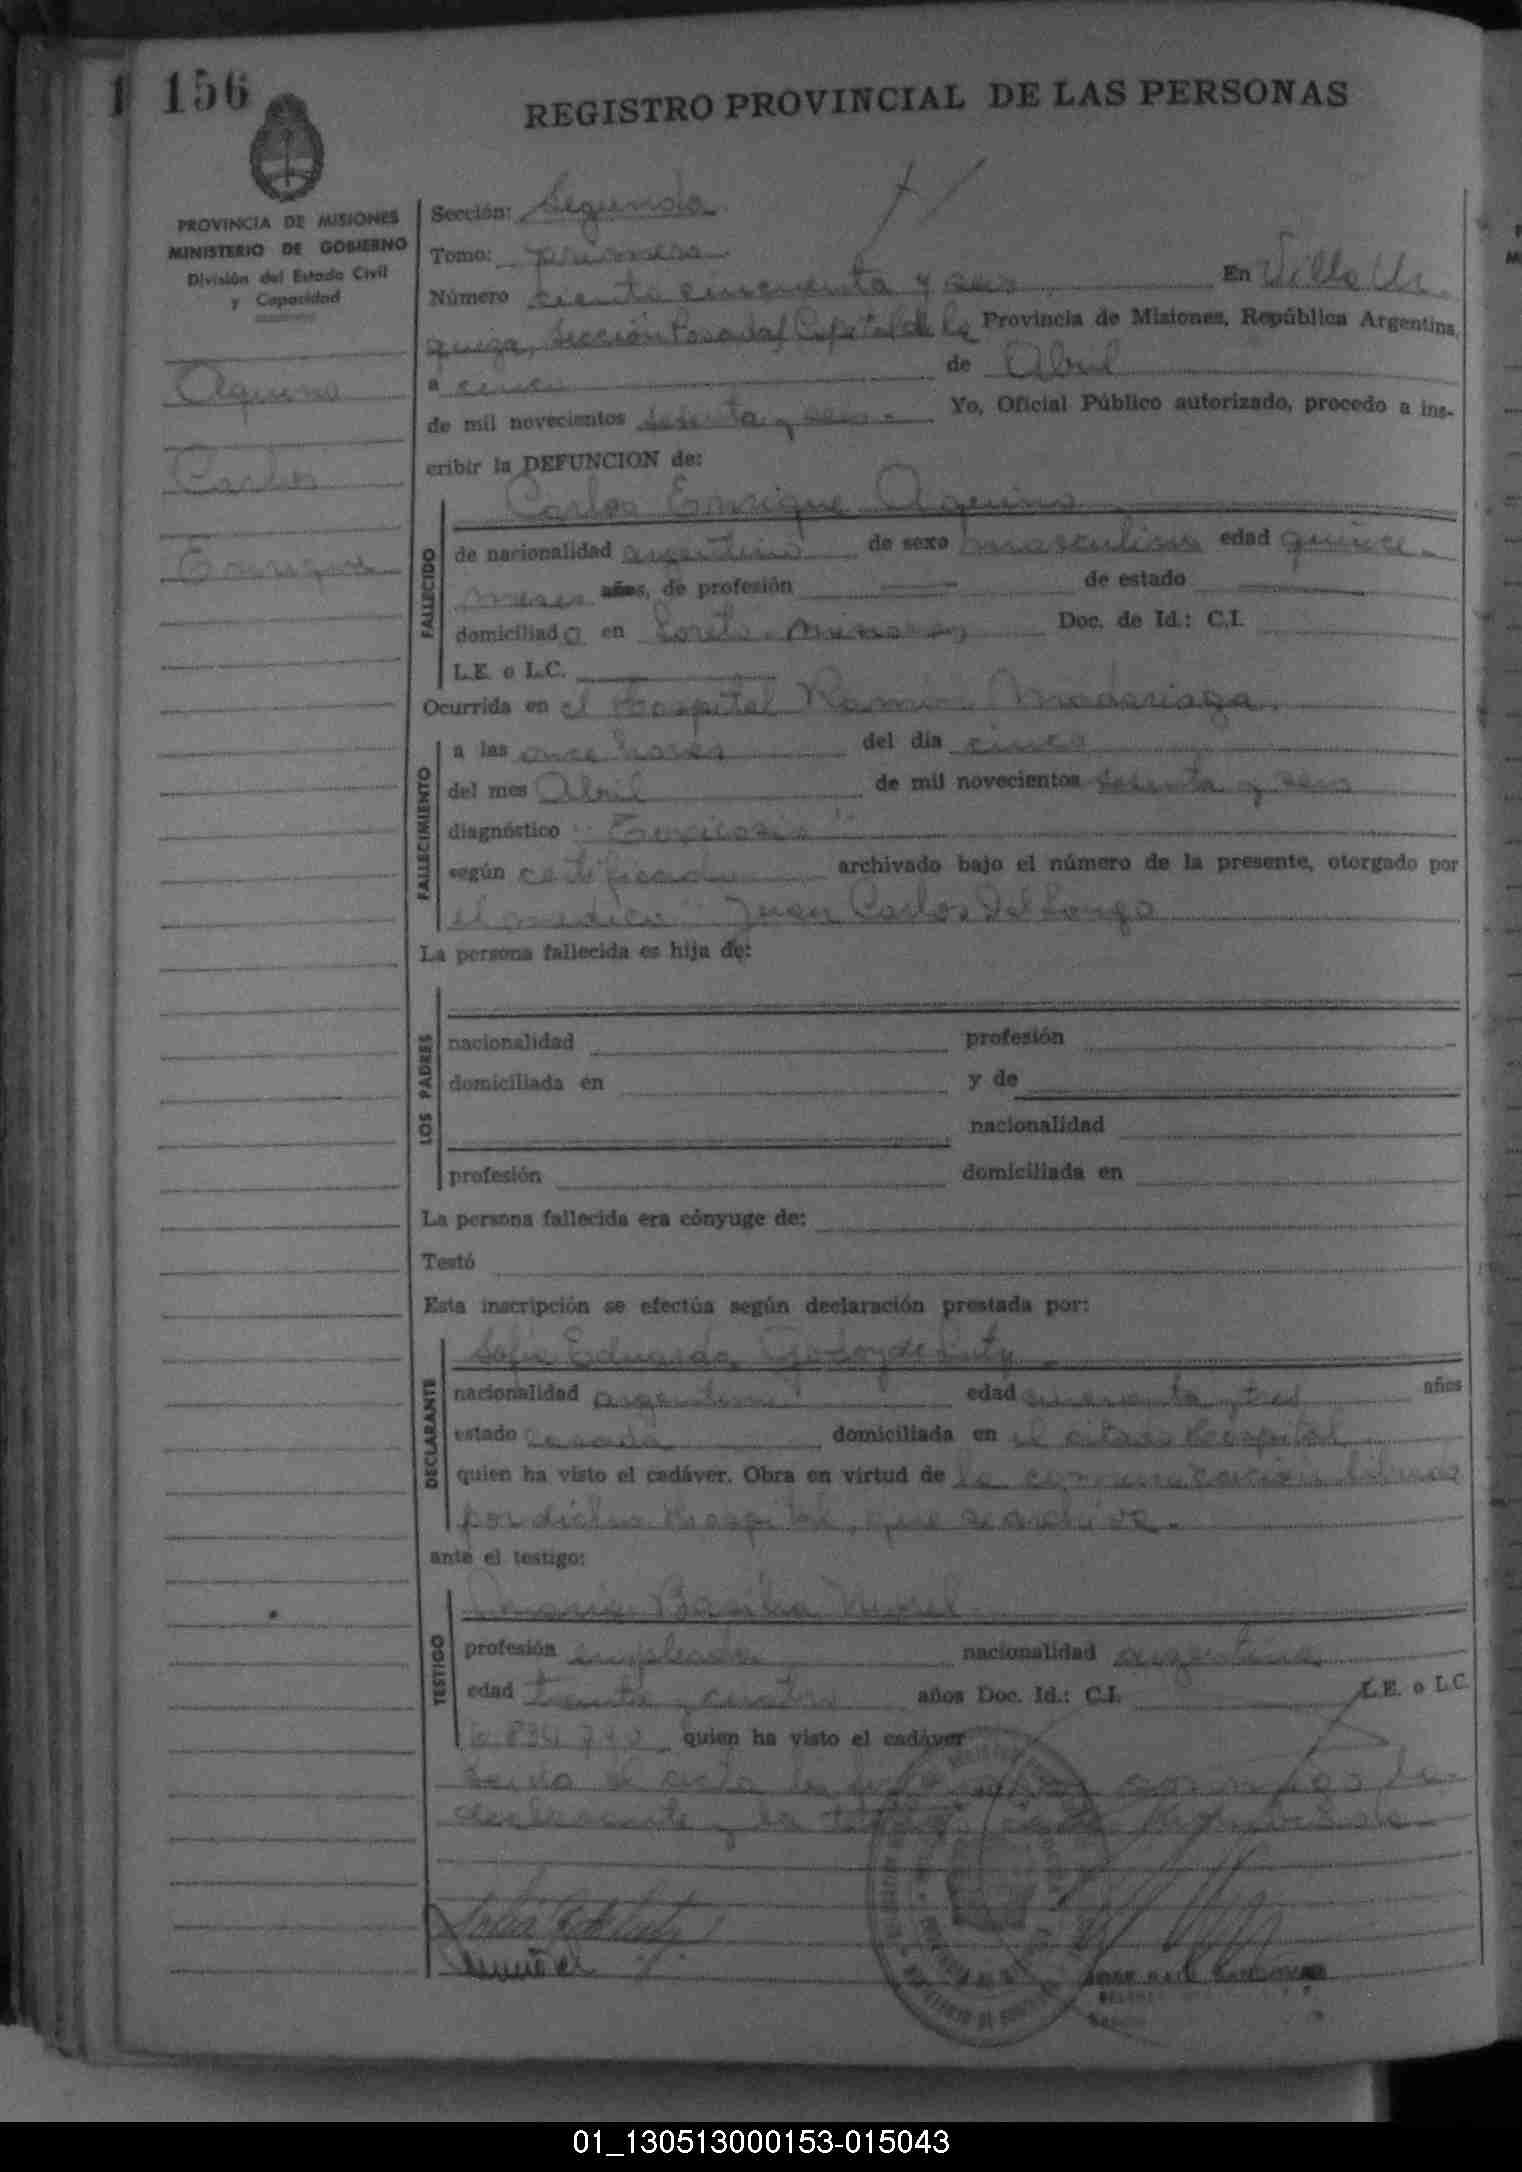 1 156
REGISTRO PROVINCIAL DE LAS PERSONAS
PROVINCIA DE MISIONES
MINISTERIO DE GOBIERNO
División del Estado Civil
y Capacidad
Aquino
Carlos
Enrique
Sección: Segunda
Tomo: primero
Número ciento cincuenta y seis En Villa Ur
quiza, Sección Posadas Capital de la Provincia de Misiones, República Argentina,
a cinco de Abril
de mil novecientos sesenta y seis. Yo, Oficial Público autorizado, procedo a ins-
cribir la DEFUNCION de:
Carlos Enrique Aquino
FALLECIDO
de nacionalidad argentino de sexo masculino edad quince
meses años, de profesión de estado
domiciliado en Loreto Misiones Doc. de Id.: C.I.
L.E. o L.C.
Ocurrida en el Hospital Ramón Madariaga.
FALLECIMIENTO
a las once horas del día cinco
del mes Abril de mil novecientos sesenta y seis
diagnóstico "Toxicosis"
según certificado archivado bajo el número de la presente, otorgado por
el medico Juan Carlos Del Longo
La persona fallecida es hija de:
LOS PADRES
nacionalidad profesión
domiciliada en y de
nacionalidad
profesión domiciliada en
La persona fallecida era cónyuge de:
Testó
Esta inscripción se efectúa según declaración prestada por:
DECLARANTE
Sofia Eduarda Godoy de Luty
nacionalidad argentina edad cuarenta y tres años
estado casada domiciliada en el citado Hospital
quien ha visto el cadáver. Obra en virtud de la comunicación librada
por dicho Hospital, que se archiva.
ante el testigo:
TESTIGO
Maria Basilia
profesión empleada nacionalidad argentina
edad treinta y cuatro años Doc. Id.: C.I. L.E. o L.C.
quien ha visto el cadáver
Leida el acta la firman conmigo la
declarante y la testigo
01_130513000153-015043